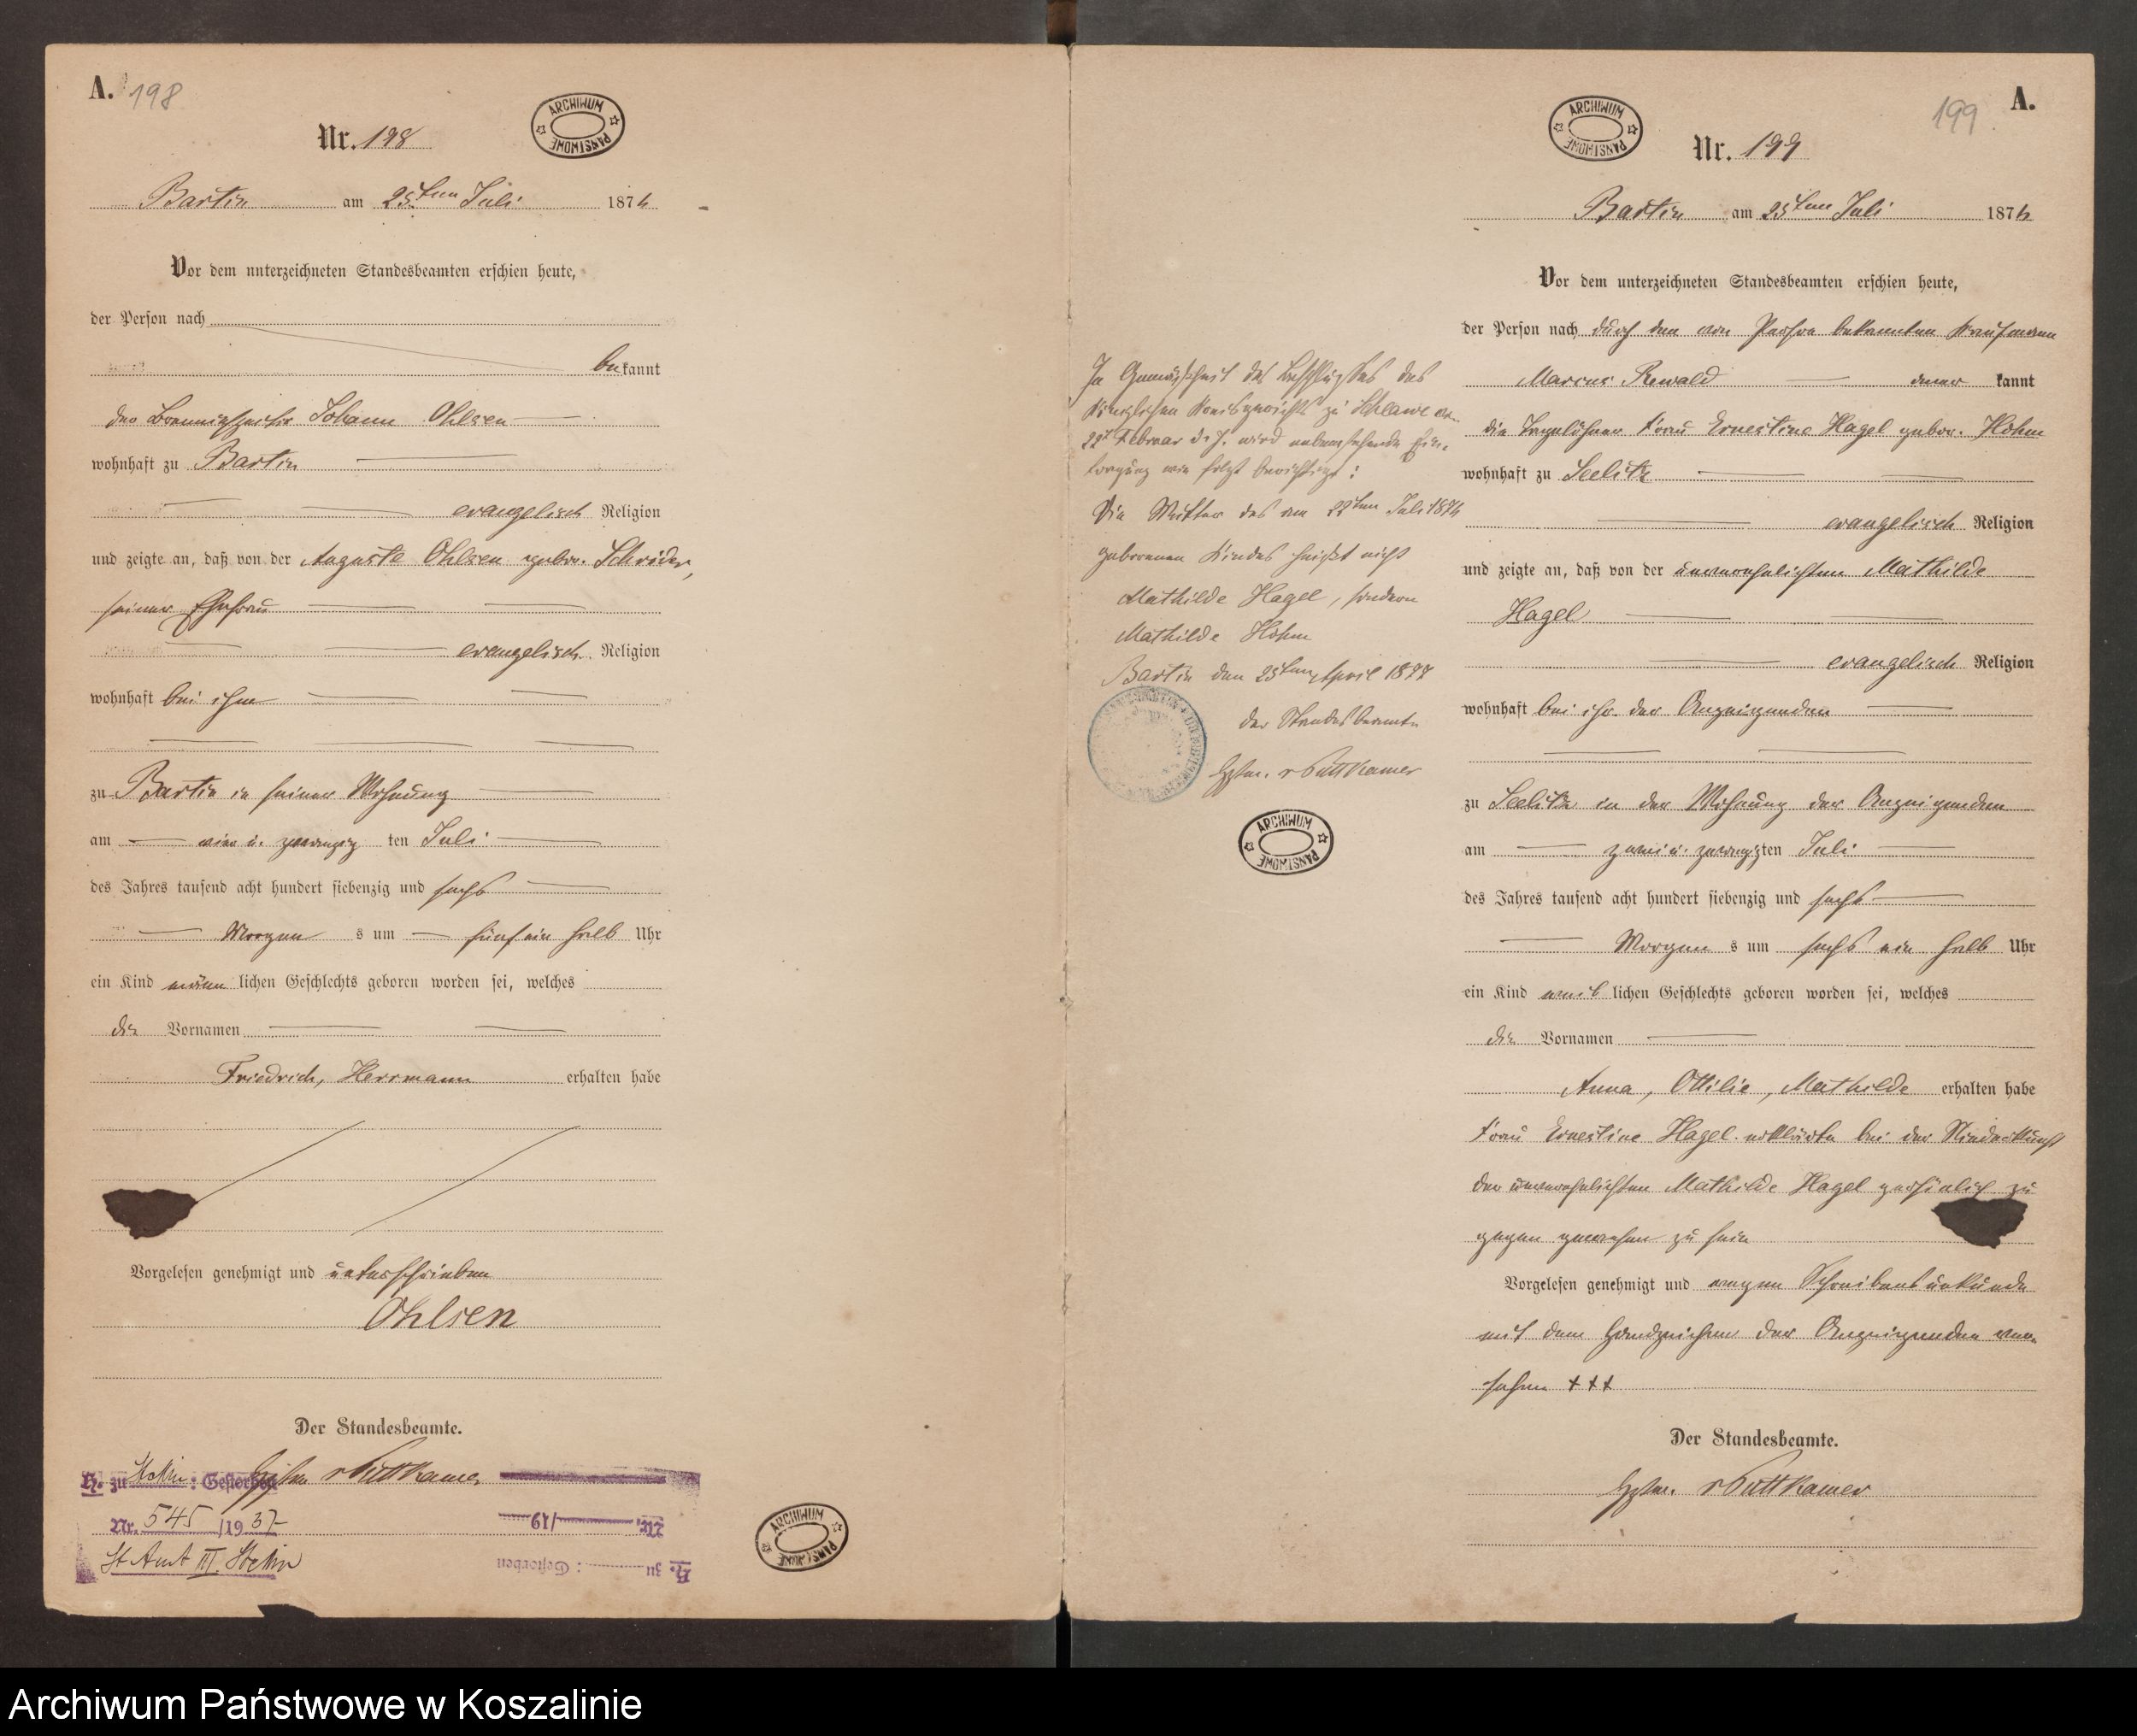 A. 198
ARCHIWUM PAŃSTWOWE
Nr. 198
Bartin am 25ten Juli 1876
Vor dem unterzeichneten Standesbeamten erschien heute,
der Person nach
bekannt
der Johann Ohlsen
wohnhaft zu Bartin
evangelisch Religion
und zeigte an, daß von der Auguste Ohlsen gebor. Schröder,
seiner Ehefrau
evangelisch Religion
wohnhaft bei ihm
zu Bartin in seiner Wohnung
am vier u. zwanzig ten Juli
des Jahres tausend acht hundert siebenzig und sechs
Morgen s um fünf ein halb Uhr
ein Kind männ lichen Geschlechts geboren worden sei, welches
die Vornamen
Friedrich, Herrmann erhalten habe
Vorgelesen genehmigt und unterschrieben
Ohlsen
Der Standesbeamte.
Hptm. v Puttkamer
H. zu Stettin: Gestorben
Nr. 545/1937
St Amt III. Stettin
H. zu : Gestorben
Nr. /19
ARCHIWUM PAŃSTWOWE
199 A.
ARCHIWUM PAŃSTWOWE
Nr. 199
Bartin am 25ten Juli 1876
Vor dem unterzeichneten Standesbeamten erschien heute,
der Person nach durch den von Person bekannten Kaufmann
Marcus Rewald aner kannt
die Tagelöhner Frau Ernestine Hagel gebor. Hohm
wohnhaft zu Seelitz
evangelisch Religion
und zeigte an, daß von der unverehelichten Mathilde
Hagel
evangelisch Religion
wohnhaft bei ihr der Anzeigenden
zu Seelitz in der Wohnung der Anzeigenden
am zwei u. zwanzigten Juli
des Jahres tausend acht hundert siebenzig und sechs
Morgen s um sechs ein halb Uhr
ein Kind weib lichen Geschlechts geboren worden sei, welches
die Vornamen
Anna, Ottilie, Mathilde erhalten habe
Frau Ernestine Hagel erklärte bei der Niederkunft
der unverehelichten Mathilde Hagel persönlich zu
gegen gewesen zu sein
Vorgelesen genehmigt und wegen Schreibensunkunde
mit dem Handzeichen der Anzeigenden ver-
sehen +++
Der Standesbeamte.
Hptm. v Puttkamer
In Gemäßheit des Beschlusses des
Königlichen Kreisgerichts zu Schlawe vom
22t Februar d. J. wird nebenstehende Ein-
tragung wie folgt berichtigt:
Die Mutter des am 22ten Juli 1876
geborenen Kindes heißt nicht
Mathilde Hagel, sondern
Mathilde Hohm
Bartin den 25ten April 1877
der Standesbeamte
Hptm. v Puttkamer
ARCHIWUM PAŃSTWOWE
Archiwum Państwowe w Koszalinie